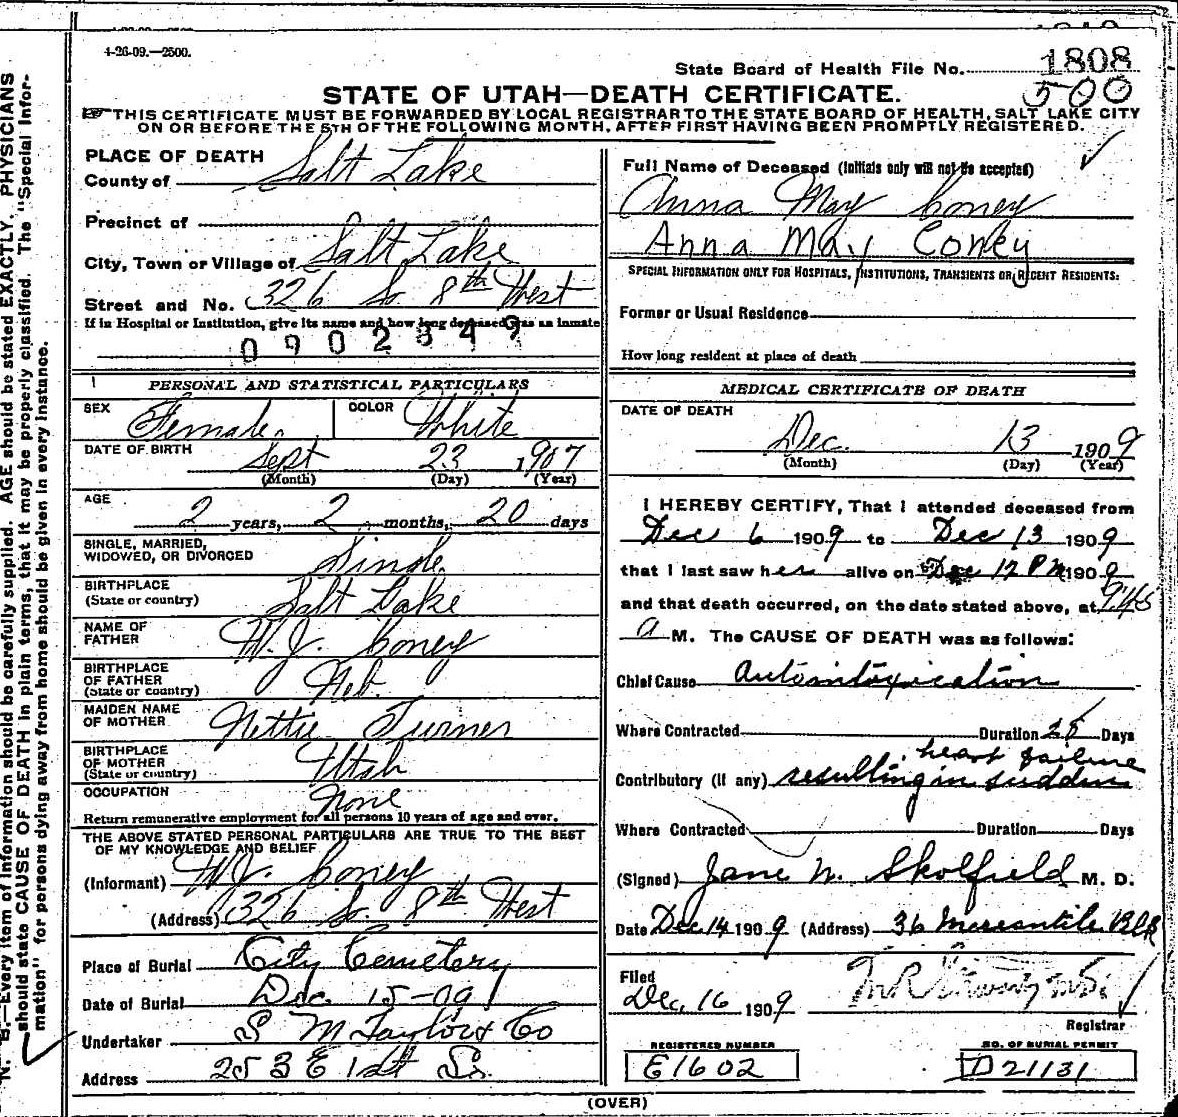 4-26-09.—2500.
State Board of Health File No. 1808
500
STATE OF UTAH—DEATH CERTIFICATE.
THIS CERTIFICATE MUST BE FORWARDED BY LOCAL REGISTRAR TO THE STATE BOARD OF HEALTH, SALT LAKE CITY
ON OR BEFORE THE 5TH OF THE FOLLOWING MONTH, AFTER FIRST HAVING BEEN PROMPTLY REGISTERED.
PLACE OF DEATH
County of Salt Lake
Precinct of
City, Town or Village of Salt Lake
Street and No. 326 So. 8th West
If in Hospital or Institution, give its name and how long deceased was an inmate
0902849
PERSONAL AND STATISTICAL PARTICULARS
SEX Female. COLOR White
DATE OF BIRTH Sept 23 1907
(Month) (Day) (Year)
AGE 2 years, 2 months, 20 days
SINGLE, MARRIED,
WIDOWED, OR DIVORCED Single
BIRTHPLACE
(State or country) Salt Lake
NAME OF
FATHER W. J. Coney
BIRTHPLACE
OF FATHER
(State or country) Neb.
MAIDEN NAME
OF MOTHER Nettie Turner
BIRTHPLACE
OF MOTHER
(State or country) Utah
OCCUPATION None
Return remunerative employment for all persons 10 years of age and over.
THE ABOVE STATED PERSONAL PARTICULARS ARE TRUE TO THE BEST
OF MY KNOWLEDGE AND BELIEF
(Informant) W. J. Coney
(Address) 326 So. 8th West
Place of Burial City Cemetery
Date of Burial Dec. 15-09
Undertaker S M Taylor & Co
Address 253 E 1st So.
Full Name of Deceased (Initials only will not be accepted)
Anna May Coney
Anna May Coney
SPECIAL INFORMATION ONLY FOR HOSPITALS, INSTITUTIONS, TRANSIENTS OR RECENT RESIDENTS:
Former or Usual Residence
How long resident at place of death
MEDICAL CERTIFICATE OF DEATH
DATE OF DEATH
Dec. 13 1909
(Month) (Day) (Year)
I HEREBY CERTIFY, That I attended deceased from
Dec 6 1909 to Dec 13 1909
that I last saw her alive on Dec 12 PM 1909
and that death occurred, on the date stated above, at
a M. The CAUSE OF DEATH was as follows:
Chief Cause Autointoxication
Where Contracted Duration Days
heart failure
Contributory (if any) resulting in sudden
Where Contracted Duration Days
(Signed) Jane W. Skolfield M. D.
Date Dec 14 1909 (Address) 36 Mercantile Blk
Filed
Dec. 16 1909
Registrar
REGISTERED NUMBER
E1602
NO. OF BURIAL PERMIT
D21131
(OVER)
N. B.—Every item of information should be carefully supplied. AGE should be stated EXACTLY. PHYSICIANS
should state CAUSE OF DEATH in plain terms, that it may be properly classified. The "Special Infor-
mation" for persons dying away from home should be given in every instance.